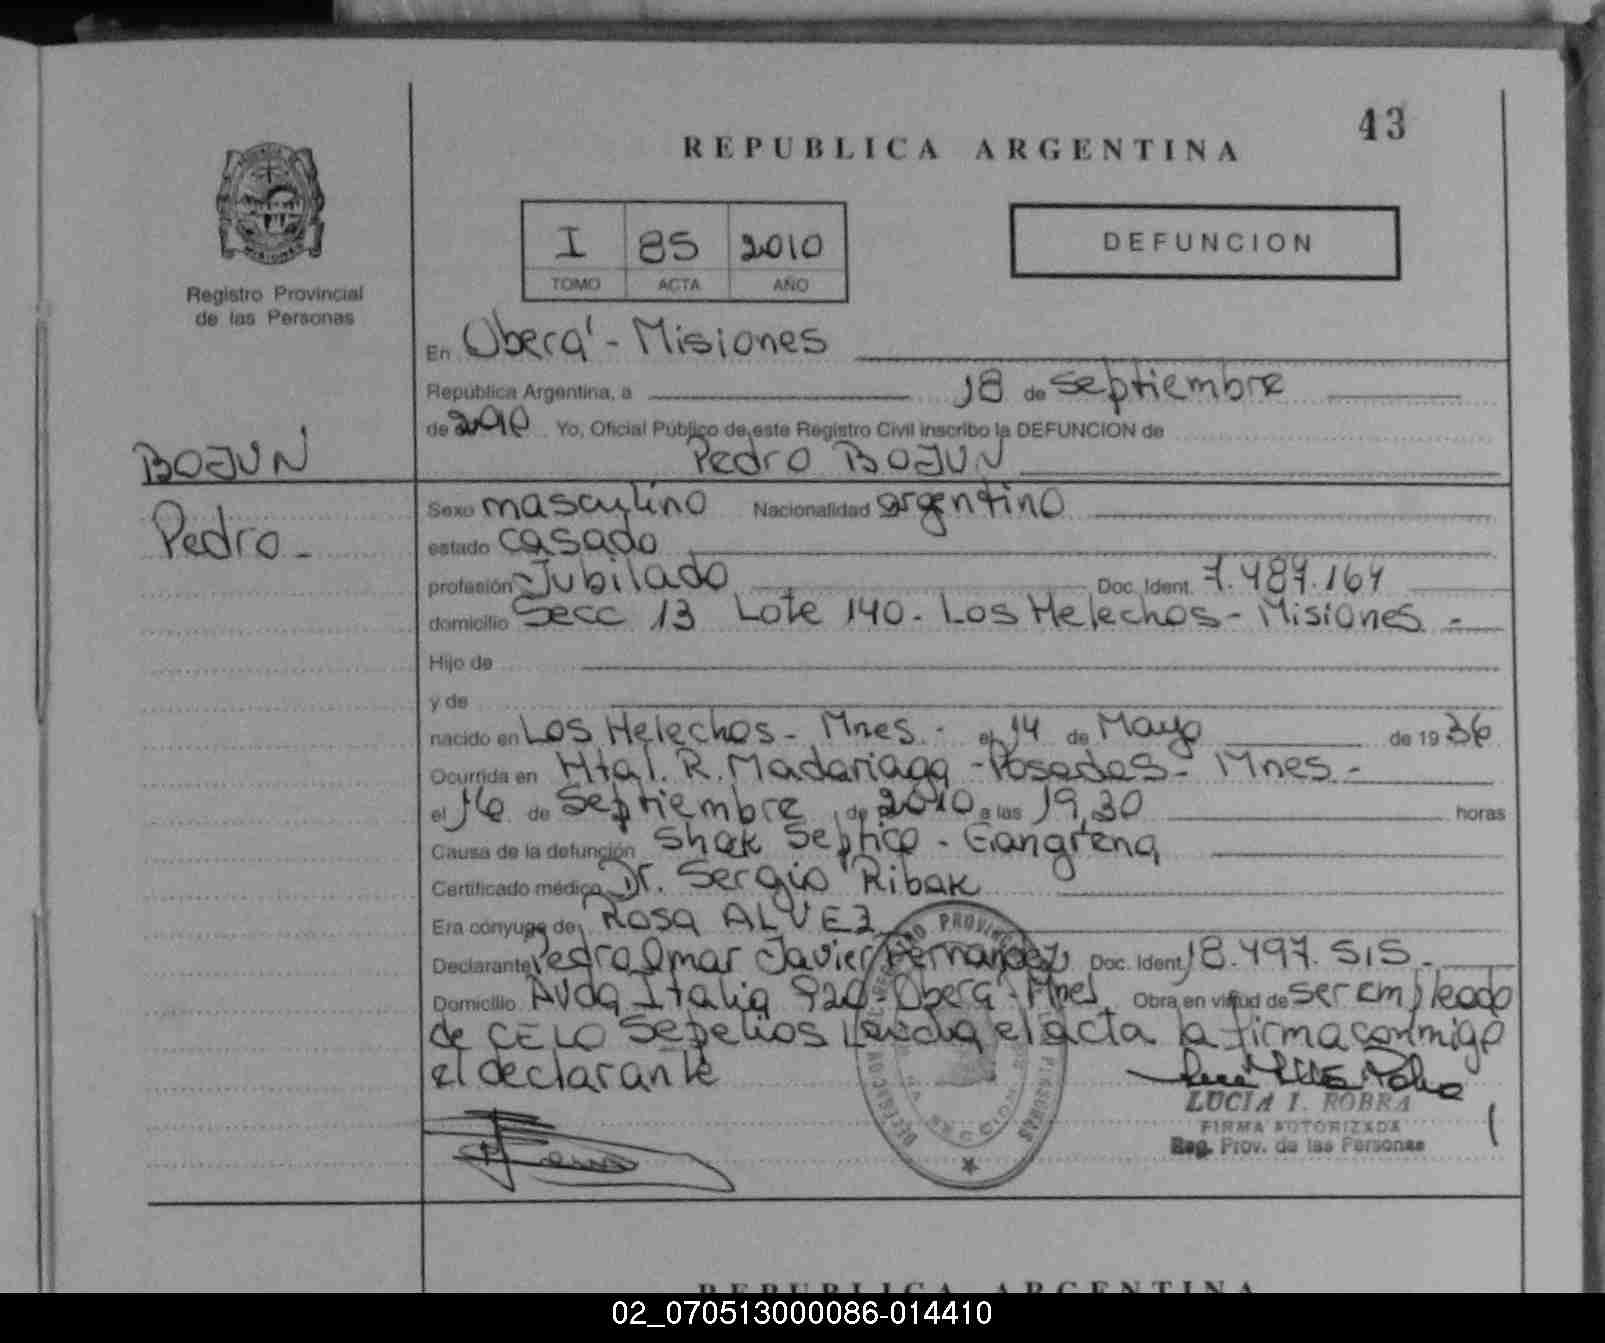 43
REPUBLICA ARGENTINA
Registro Provincial
de las Personas
I 85 2010
TOMO ACTA AÑO
DEFUNCION
En Oberá - Misiones
República Argentina, a 18 de septiembre
de 2010 Yo, Oficial Público de este Registro Civil inscribo la DEFUNCION de
Pedro BOJUN
BOJUN
Pedro -
Sexo masculino Nacionalidad argentino
estado casado
profesión Jubilado Doc. Ident. 7.487.164
domicilio Secc 13 Lote 140 - Los Helechos - Misiones -
Hijo de
y de
nacido en Los Helechos - Mnes - el 14 de Mayo de 1936
Ocurrida en Htal. R. Madariaga - Posadas - Mnes -
el 16 de Septiembre de 2010 a las 19,30 horas
Causa de la defunción Shok Septico - Gangrena
Certificado médico Dr. Sergio Ribak
Era cónyuge de Rosa ALVEZ
Declarante Pedro Omar Javier Fernandez Doc. Ident. 18.497.515 -
Domicilio Avda Italia 920 - Oberá - Mnes Obra en virtud de ser empleado
de CELO Sepelios Leida el acta la firma conmigo
el declarante
LUCIA I. ROBRA
FIRMA AUTORIZADA
Reg. Prov. de las Personas
REPUBLICA ARGENTINA
02_070513000086-014410